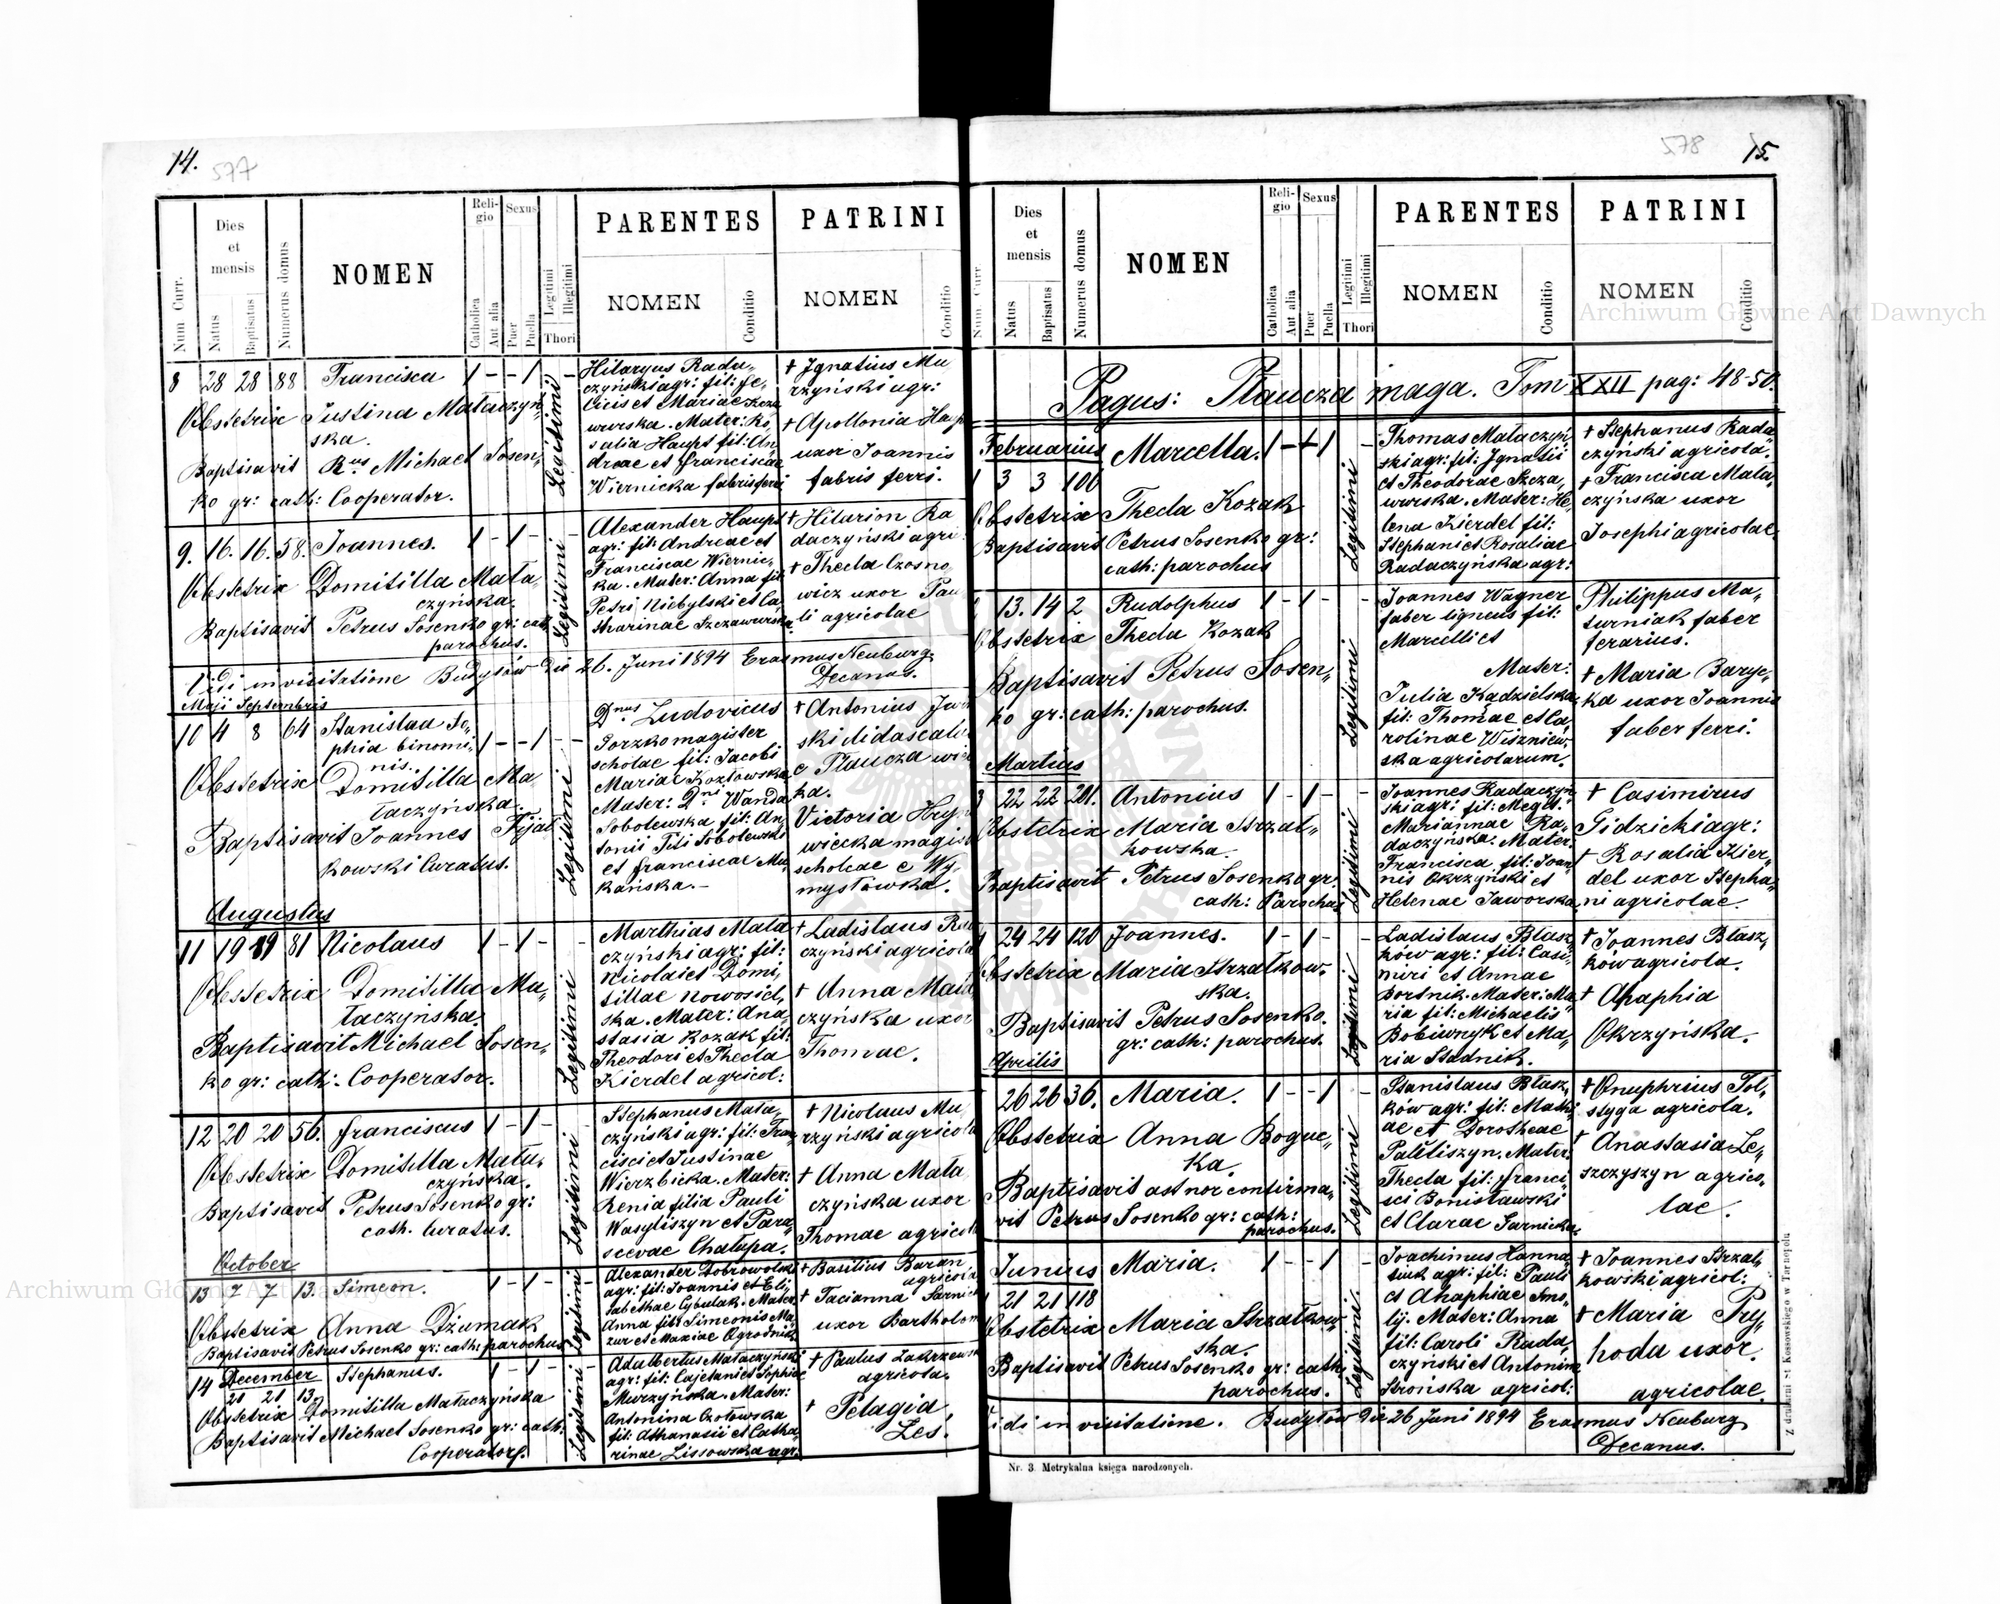 14.
577
Num Curr.
Dies
et
mensis
Natus
Baptisatus
Numerus domus
NOMEN
Reli-
gio
Catholica
Aut alia
Sexus
Puer
Puella
Legitimi
Illegitimi
Thori
PARENTES
NOMEN
Conditio
PATRINI
NOMEN
Conditio
8 28 28 88 Francisca 1 - - 1 -
Obstetrix Justina Mataczyń„
ska.
Baptisavit Rus Michael Sosen„
ko gr: cath: Cooperator.
Legitimi
Hilaryus Rada„
czyński agr: fil: Fe„
licis et Mariae Szcza
wurska. Mater: Ro„
salia Haupt fil: An„
dreae et Franciscae
Wiernicka fabris ferri
† Ignatius Mu
rzyński agr:
† Apollonia Haup
uxor Joannis
fabris ferri.
9. 16. 16. 58. Joannes. 1 - 1 -
Obstetrix Domitilla Mata„
czyńska.
Baptisavit Petrus Sosenko gr: cath
parochus.
Legitimi
Alexander Haupt
agr: fil: Andreae et
Franciscae Wiernic„
ka. Mater: Anna fil:
Petri Niebylski et Ca„
tharinae Szczawurska.
† Hilarion Ra
daczyński agri
† Thecla Czosno„
wicz uxor Pau
li agricolae
Vidi in visitatione Budyłów die 26. Juni 1894 Erasmus Neuburg
Decanus.
Maji Septembris
10 4 8 64 Stanislaa So„
phia binomi„ 1 - - 1 - -
nis.
Obstetrix Domitilla Ma„
taczyńska.
Baptisavit Joannes Fijał
kowski Curatus.
Legitimi
Dnus Ludovicus
Gorzko magister
scholae fil: Jacobi
Mariae Kozłowska
Mater: Dni Wanda
Sobolewska fil: An„
tonii Titi Sobolewski
et Franciscae Mu„
kańska.-
† Antonius Jaw
ski didascalus
e Płaucza wiel
ka.
Victoria Hryn
wiecka magis
scholae e Wy„
mysłówka.
Augustus
11 19 19 81 Nicolaus 1 - 1 - -
Obstetrix Domitilla Ma„
taczyńska.
Baptisavit Michael Sosen„
ko gr: cath: Cooperator.
Legitimi
Matthias Mata
czyński agr: fil:
Nicolai et Domi„
tillae Nowosiel„
ska. Mater: Ana„
stasia Kozak fil:
Theodori et Thecla
Kierdel agricol:
† Ladislaus Rad
czyński agricola
† Anna Mata
czyńska uxor
Thomae.
12 20 20 56. Franciscus 1 - 1 -
Obstetrix Domitilla Mata„
czyńska.
Baptisavit Petrus Sosenko gr:
cath. Curatus.
Legitimi
Stephanus Mata„
czyński agr: fil: Fran„
cisci et Justinae
Wierzbicka. Mater:
Xenia filia Pauli
Wasyliszyn et Para„
scevae Chałupa.
† Nicolaus Mu„
rzyński agricola
† Anna Mata
czyńska uxor
Thomae agricola
October
13 7 7 13. Simeon. 1 - 1 - -
Obstetrix Anna Dżumak
Baptisavit Petrus Sosenko gr: cath: parochus
Legitimi
Alexander Dobrowolski
agr: fil: Joannis et Eli„
sabethae Cybulak. Mater:
Anna fil: Simeonis Ma„
zur et Maxiae Ogrodnik
† Basilius Baran
agricola
† Tacianna Sarnick
uxor Bartholom
14 December Stephanus. 1 - 1 - -
21 21 13
Obstetrix Domitilla Mataczyńska
Baptisavit Michael Sosenko gr: cath:
Cooperator.
Legitimi
Adalbertus Mataczyński
agr: fil: Cajetani et Sophiae
Murzyńska. Mater:
Antonina Czotowska
fil: Athanasii et Catha„
rinae Lissowska agr:
† Paulus Zakrzewsk
agricola.
† Pelagia
Leś.
578
15.
Num Curr
Dies
et
mensis
Natus
Baptisatus
Numerus domus
NOMEN
Reli-
gio
Catholica
Aut alia
Sexus
Puer
Puella
Legitimi
Illegitimi
Thori
PARENTES
NOMEN
Conditio
PATRINI
NOMEN
Conditio
Pagus: Płaucza maga. Tom XXII pag: 48-50.
Februarius Marcella. 1 - + 1 -
1 3 3 100
Obstetrix Thecla Kozak
Baptisavit Petrus Sosenko gr:
cath: parochus
Legitimi
Thomas Mataczyń„
ski agr: fil: Ignatii
et Theodorae Szcza„
wurska. Mater: He„
lena Kierdel fil:
Stephani et Rosaliae
Radaczyńska agr:
† Stephanus Rada„
czyński agricola.
† Francisca Mata„
czyńska uxor
Josephi agricolae
13. 14 2 Rudolphus 1 - 1 - -
Obstetrix Thecla Kozak
Baptisavit Petrus Sosen„
ko gr: cath: parochus.
Legitimi
Joannes Wagner
faber ligneus fil:
Marcelli et
Mater:
Julia Kądzielska
fil: Thomae et Ca„
rolinae Wiszniew„
ska agricolarum.
Philippus Ma„
turniak faber
ferarius.
† Maria Baryc„
ka uxor Joannis
faber ferri.
Martius
3 22 22 201. Antonius 1 - 1 - -
Obstetrix Maria Strzał„
kowska.
Baptisavit Petrus Sosenko gr:
cath: Parochus
Legitimi
Joannes Radaczyń„
ski agr: fil: Megit:
Mariannae Ra„
daczyńska. Mater:
Francisca fil: Joan„
nis Okrzyński et
Helenae Jaworska.
† Casimirus
Gidzicki agr:
† Rosalia Kier„
del uxor Stepha„
ni agricolae.
24 24 120 Joannes. 1 - 1 - -
Obstetrix Maria Strzałkow„
ska.
Baptisavit Petrus Sosenko.
gr: cath: parochus.
Legitimi
Ladislaus Błasz„
ków agr: fil: Casi„
miri et Annae
Bortnik. Mater: Ma„
ria fil: Michaelis
Bobiwnyk et Ma„
ria Stadnik.
† Joannes Błasz„
ków agricola.
† Ahaphia
Okrzyńska.
Aprilis
26 26 36. Maria. 1 - - 1 -
Obstetrix Anna Boguc„
ka.
Baptisavit ast non confirma„
vit Petrus Sosenko gr: cath:
parochus.
Legitimi
Stanislaus Błasz„
ków agr: fil: Math„
ae et Dorotheae
Paliliszyn. Mater:
Thecla fil: Franci„
sci Bonisławski
et Clarae Sarnicka.
† Onuphrius Tol„
styga agricola.
† Anastasia Le„
szczyszyn agrico„
lae.
Junius Maria. 1 - - 1 -
21 21 118
Obstetrix Maria Strzałkow„
ska.
Baptisavit Petrus Sosenko gr: cath:
parochus.
Legitimi
Joachimus Hanna„
siuk agr: fil: Pauli
et Ahaphiae Smo„
lij. Mater: Anna
fil: Caroli Rada„
czyński et Antonina
Strońska agricol:
† Joannes Strzał„
kowski agricol:
† Maria Pry„
hoda uxor
agricolae.
Vidi in visitatione. Budyłów die 26 Juni 1894 Erasmus Neuburg
Decanus.
Nr. 3 Metrykalna księga narodzonych.
Z drukarni St Kossowskiego w Tarnopolu
Archiwum Główne Akt Dawnych
Archiwum Główne Akt Dawnych